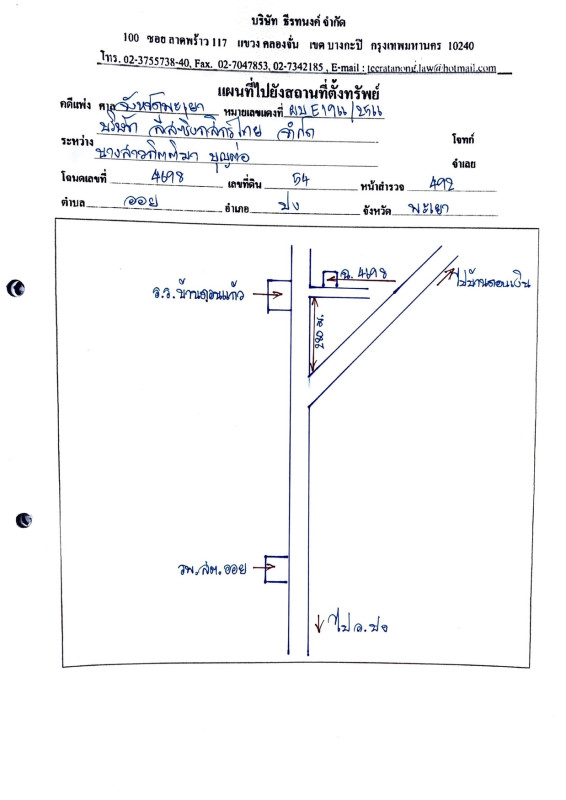 บริษัท ธีรทนงค์ จำกัด
100 ซอย ลาดพร้าว 117 แขวง คลองจั่น เขต บางกะปิ กรุงเทพมหานคร 10240
โทร. 02-3755738-40, Fax. 02-7047853, 02-7342185 , E-mail : teeratanong.law@hotmail.com
แผนที่ไปยังสถานที่ตั้งทรัพย์
คดีแพ่ง ศาล จังหวัดพะเยา หมายเลขแดงที่ ผบE1911/2511
บริษัท ลีสซิ่งกสิกรไทย จำกัด
ระหว่าง โจทก์
นางสาวกิตติมา บุญต่อ
จำเลย
โฉนดเลขที่ 4698 เลขที่ดิน 54 หน้าสำรวจ 492
ตำบล ออย อำเภอ ปง จังหวัด พะเยา
ฉ. 4698
ไปบ้านดอนเงิน
ร.ร.บ้านดอนแก้ว
280 ม.
รพ.สต.ออย
ไป อ.ปง